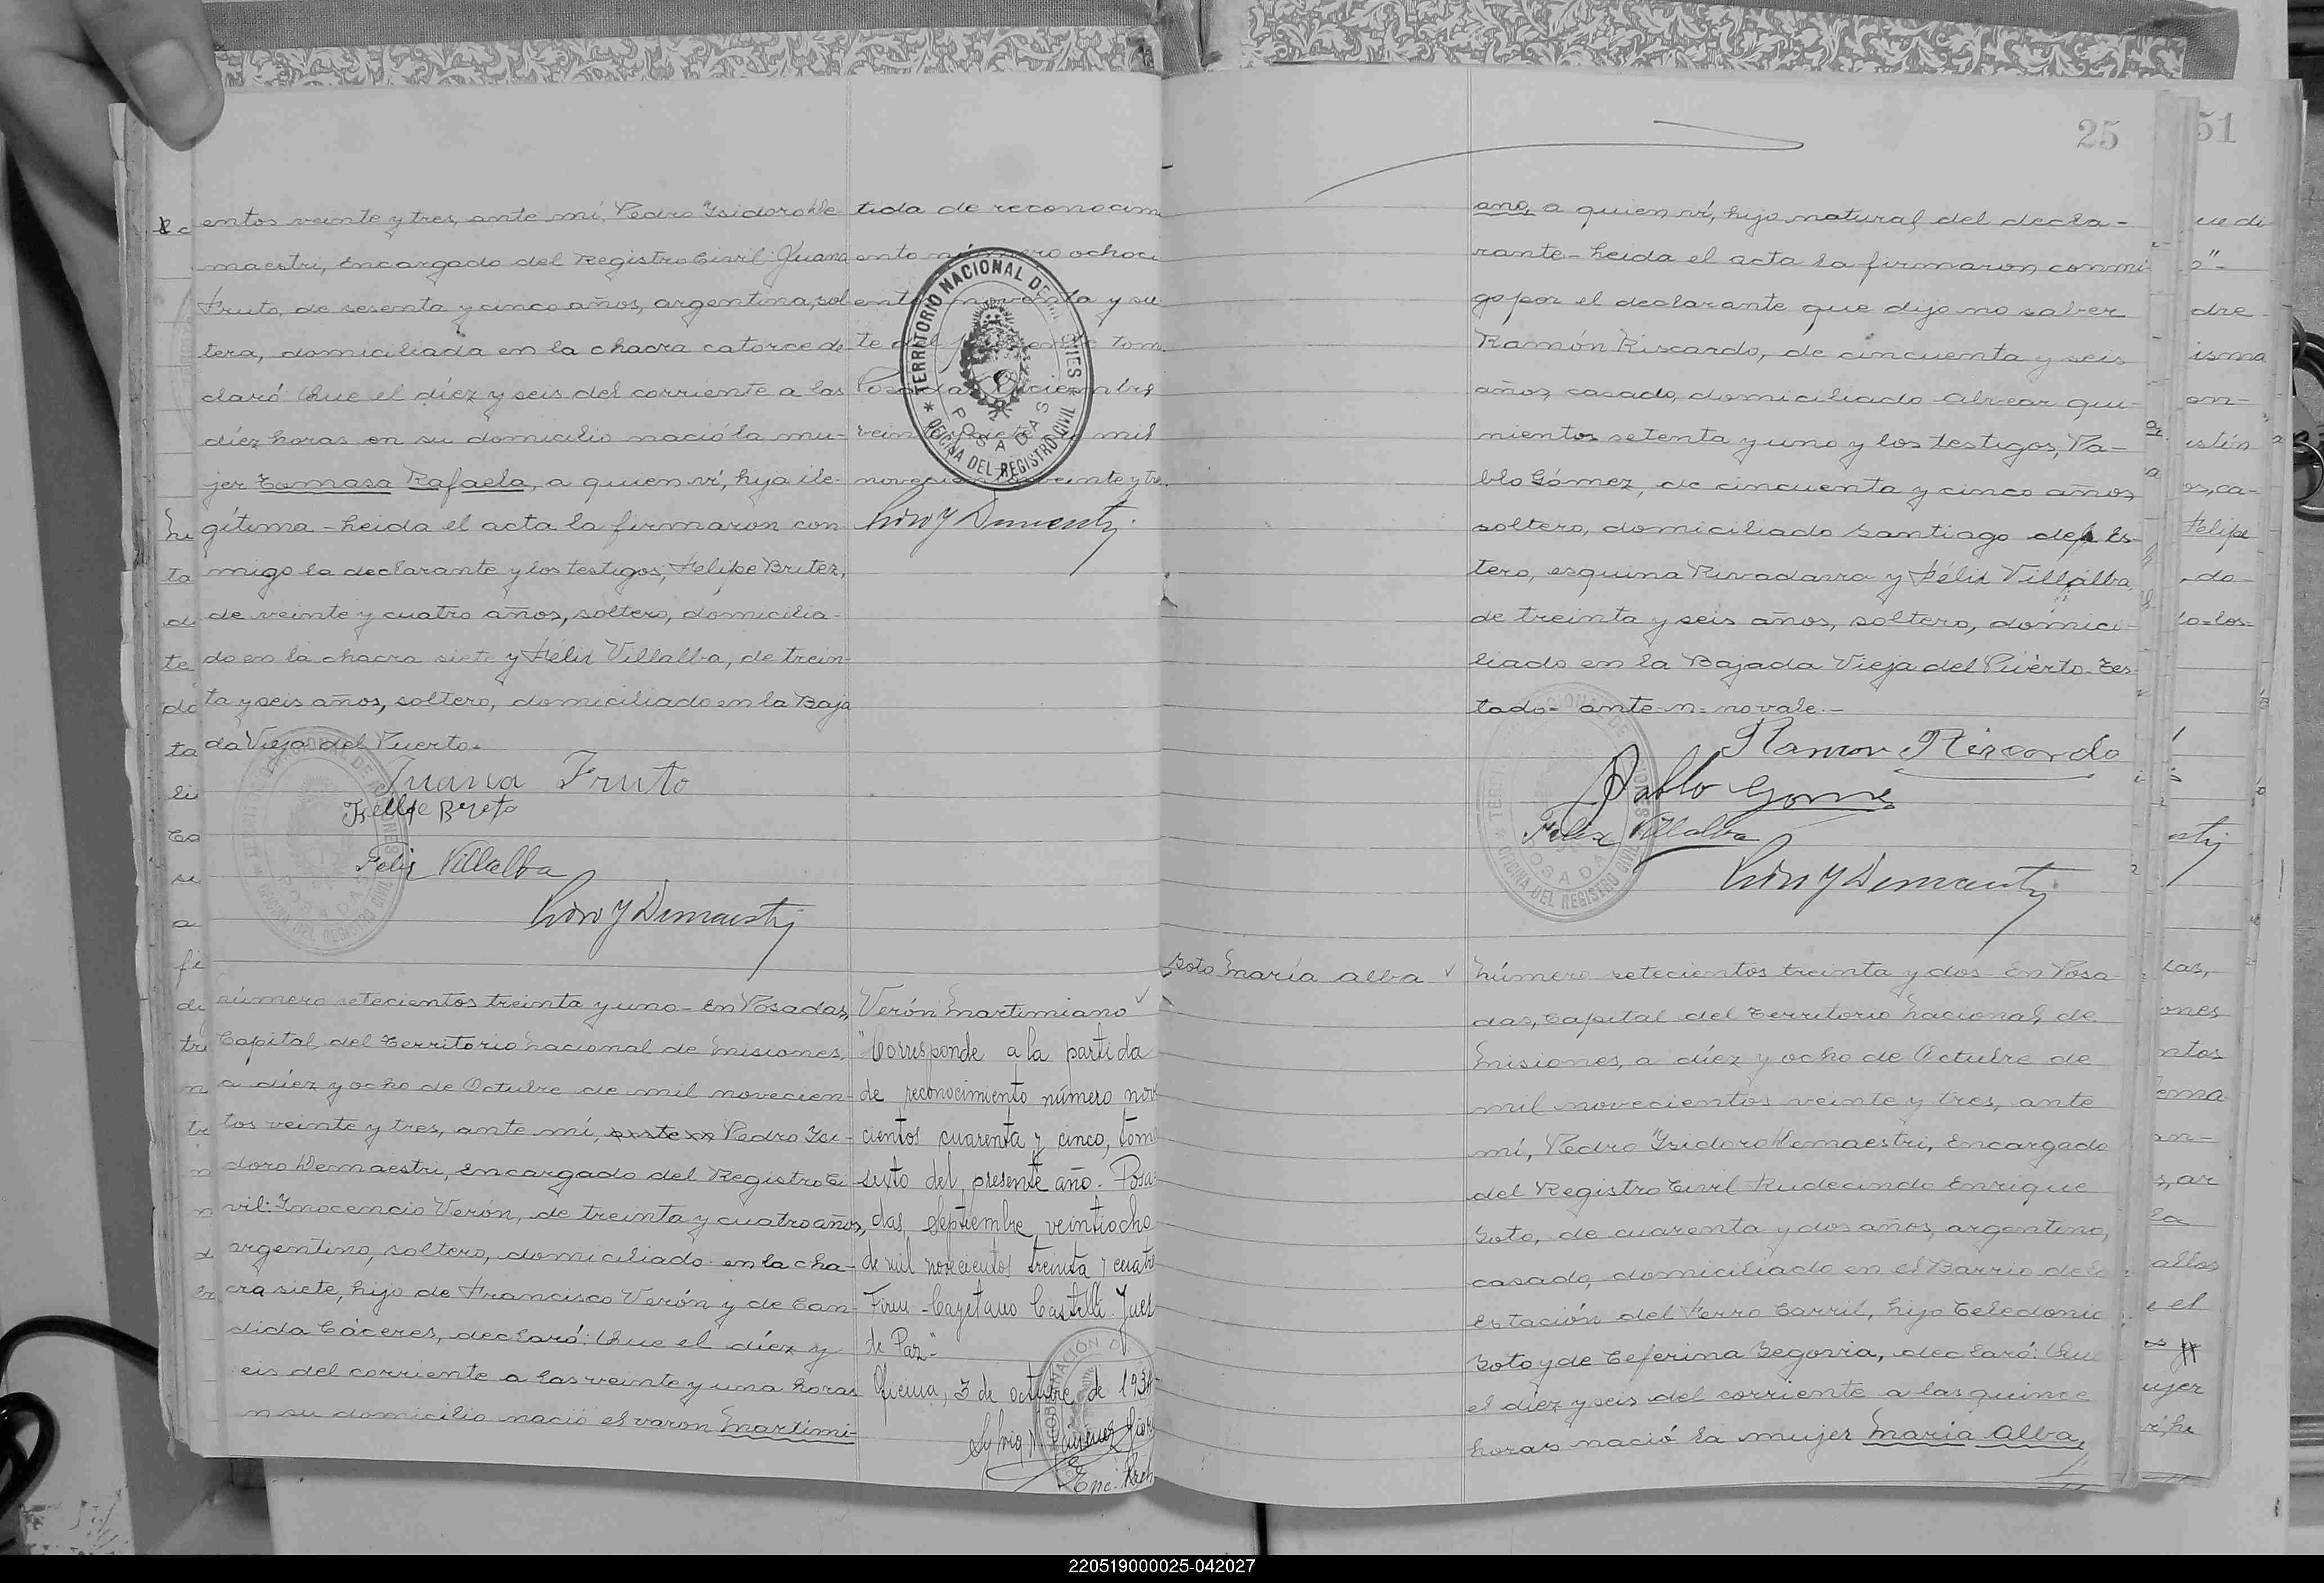 entos veinte y tres, ante mí, Pedro Isidoro De
maestri, Encargado del Registro Civil: Juana
Fruto, de sesenta y cinco años, argentina, sol
tera, domiciliada en la chacra catorce de
claró: Que el díez y seis del corriente a las
díez horas en su domicilio nació la mu-
jer Tomasa Rafaela, a quien ví, hija ile-
gítima - Leida el acta la firmaron con
migo la declarante y los testigos; Felipe Britez,
de veinte y cuatro años, soltero, domicilia-
do en la chacra siete y Félix Villalba, de trein-
ta y seis años, soltero, domiciliado en la Baja
da Vieja del Puerto.
Juana Fruto
Felix Villalba
tida de reconocim
ento número ochoci
entos noventa y sie
te del presente tom.
Posadas Diciembre
veinte y siete de mil
novecientos veinte y tre.
TERRITORIO NACIONAL DE MISIONES
POSADAS
OFICINA DEL REGISTRO CIVIL
número setecientos treinta y uno - En Posadas,
Capital del Territorio Nacional de Misiones,
a díez y ocho de Octubre de mil novecien-
tos veinte y tres, ante mí, Pedro Isi-
doro Demaestri, Encargado del Registro Ci-
vil: Inocencio Verón, de treinta y cuatro años,
argentino, soltero, domiciliado en la cha-
cra siete, hijo de Francisco Verón y de Can-
dida Cáceres, declaró: Que el díez y
eis del corriente a las veinte y una horas
n su domicilio nació el varon Martimi-
Verón Martimiano
"Corresponde a la partida
de reconocimiento número nove
cientos cuarenta y cinco, tomo
sexto del presente año - Posa-
das, Septiembre veintiocho
de mil novecientos treinta y cuatro
Firm - Cayetano Castelli. Juez
de Paz"
Oficina, 3 de octubre de 1934
25
ano, a quien ví, hijo natural del decla-
rante - Leida el acta la firmaron conmi
go por el declarante que dijo no saber
Ramón Riscardo, de cincuenta y seis
años, casado, domiciliado Alvear qui-
nientos setenta y uno y los testigos, Pa-
blo Gómez, de cincuenta y cinco años,
soltero, domiciliado Santiago del Es-
tero, esquina Rivadavia y Félix Villalba,
de treinta y seis años, soltero, domici-
liado en la Bajada Vieja del Puerto - Tes-
tado - ante - n - no vale. -
Ramon Riscardo
Pablo Gomez
Felix Villalba
Soto María Alba
Número setecientos treinta y dos - En Posa
das, Capital del Territorio Nacional de
Misiones, a díez y ocho de Octubre de
mil novecientos veinte y tres, ante
mí, Pedro Isidoro Demaestri, Encargado
del Registro Civil Rudecindo Enrique
Soto, de cuarenta y dos años, argentino,
casado, domiciliado en el Barrio de la
Estación del Ferro Carril, hijo Celedonio
Soto y de Ceferina Segovia, declaró: Que
el díez y seis del corriente a las quince
horas nació la mujer María Alba,
51
220519000025-042027